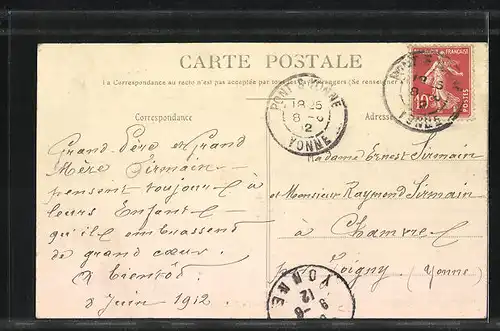 CARTE POSTALE
La Correspondance au recto n'est pas acceptée par tous
Correspondance
Adresse
Grand Père et Grand
Mère Sirmain
pensent toujours à
leurs Enfants
qu'ils embrassent
de grand cœur.
A bientôt
8 Juin 1912
Madame Ernest Sirmain
et Monsieur Raymond Sirmain
à Chamvres
Joigny (Yonne)
PONT S YONNE
18 25
8 -6
12
YONNE
10c
POSTES
YONNE
YONNE
9 -6
12